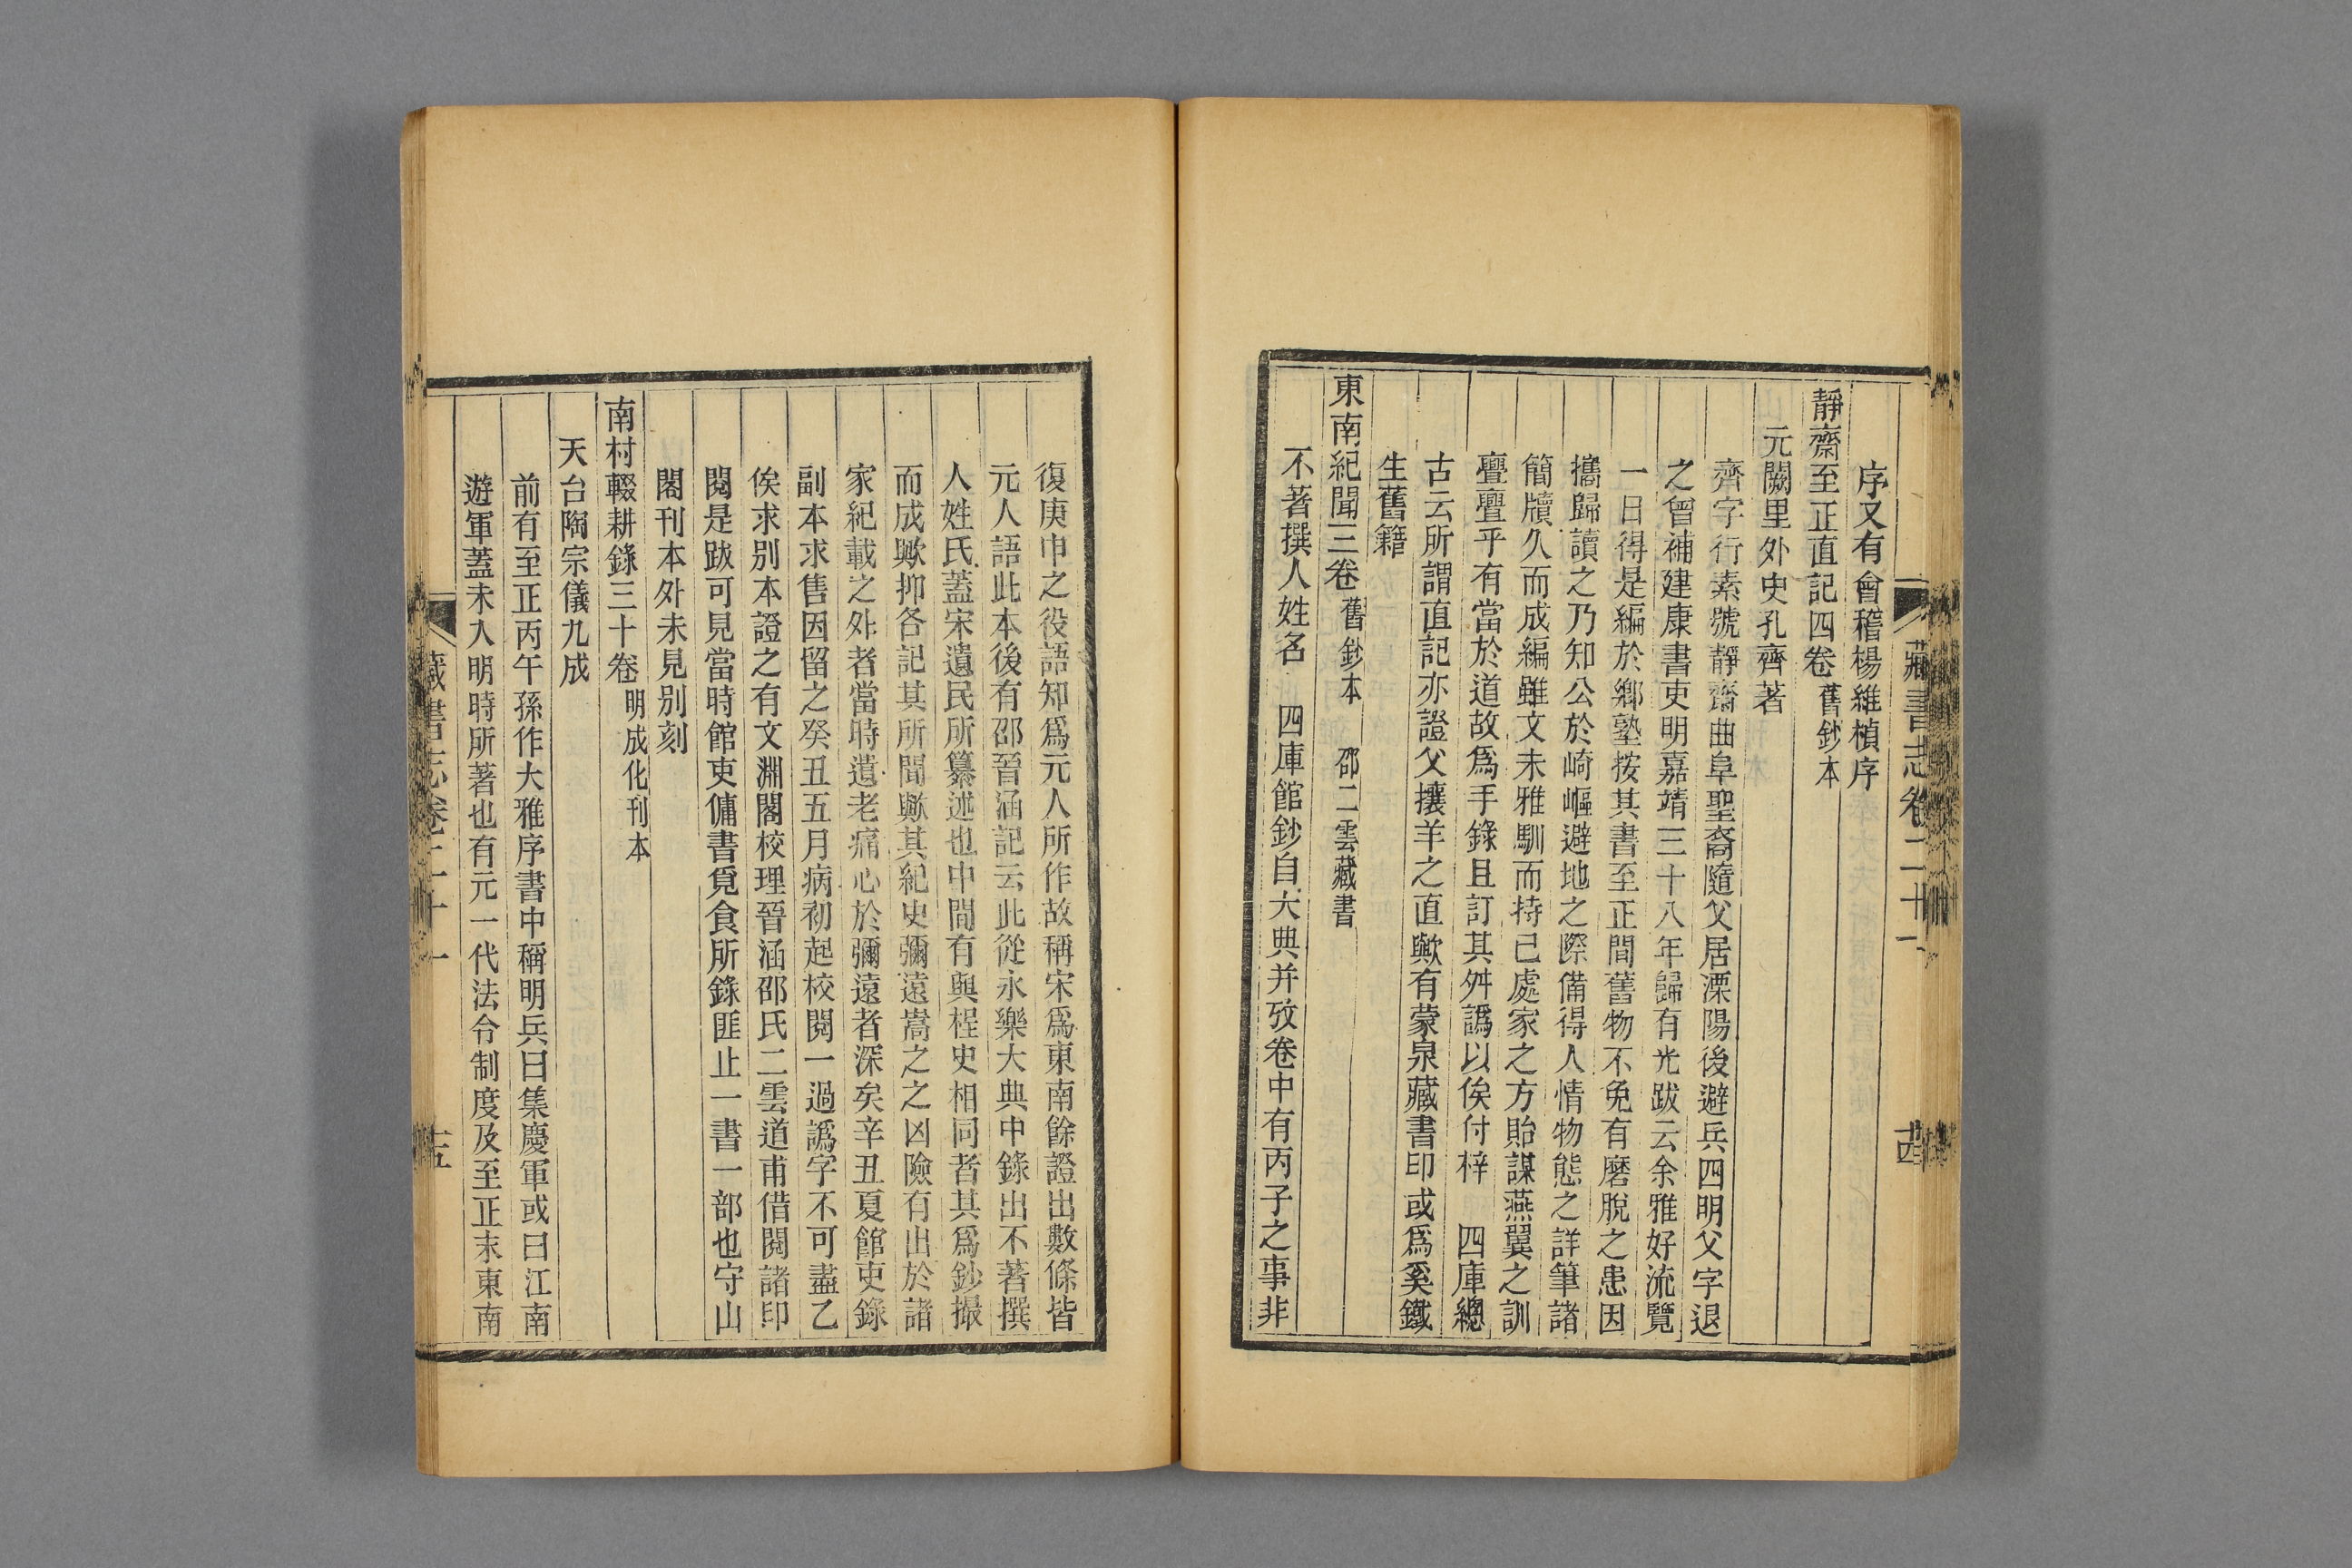 藏書志卷二十一
序又有會稽楊維楨序
靜齋至正直記四卷 舊鈔本
元闕里外史孔齊著
齊字行素號靜齋曲阜聖裔隨父居溧陽後避兵四明父字退
之曾補建康書吏明嘉靖三十八年歸有光跋云余雅好流覽
一日得是編於鄉塾按其書至正間舊物不免有磨脫之患因
攜歸讀之乃知公於崎嶇避地之際備得人情物態之詳筆諸
簡牘久而成編雖文未雅馴而持己處家之方貽謀燕翼之訓
亹亹乎有當於道故為手錄且訂其舛譌以俟付梓 四庫總
古云所謂直記亦證父攘羊之直歟有蒙泉藏書印或爲奚鐵
生舊籍
東南紀聞三卷 舊鈔本 邵二雲藏書
不著撰人姓名 四庫館鈔自大典并攷卷中有丙子之事非
復庚申之役語知爲元人所作故稱宋爲東南餘證出數條皆
元人語此本後有邵晉涵記云此從永樂大典中錄出不著撰
人姓氏蓋宋遺民所纂述也中間有與桯史相同者其爲鈔撮
而成歟抑各記其所聞歟其紀史彌遠嵩之之凶險有出於諸
家紀載之外者當時遺老痛心於彌遠者深矣辛丑夏館吏錄
副本求售因留之癸丑五月病初起校閱一過譌字不可盡乙
俟求別本證之有文淵閣校理晉涵邵氏二雲道甫借閱諸印
閱是跋可見當時館吏傭書覓食所錄匪止一書一部也守山
閣刊本外未見別刻
南村輟耕錄三十卷 明成化刊本
天台陶宗儀九成
前有至正丙午孫作大雅序書中稱明兵曰集慶軍或曰江南
遊軍蓋未入明時所著也有元一代法令制度及至正末東南
藏書志卷二十一